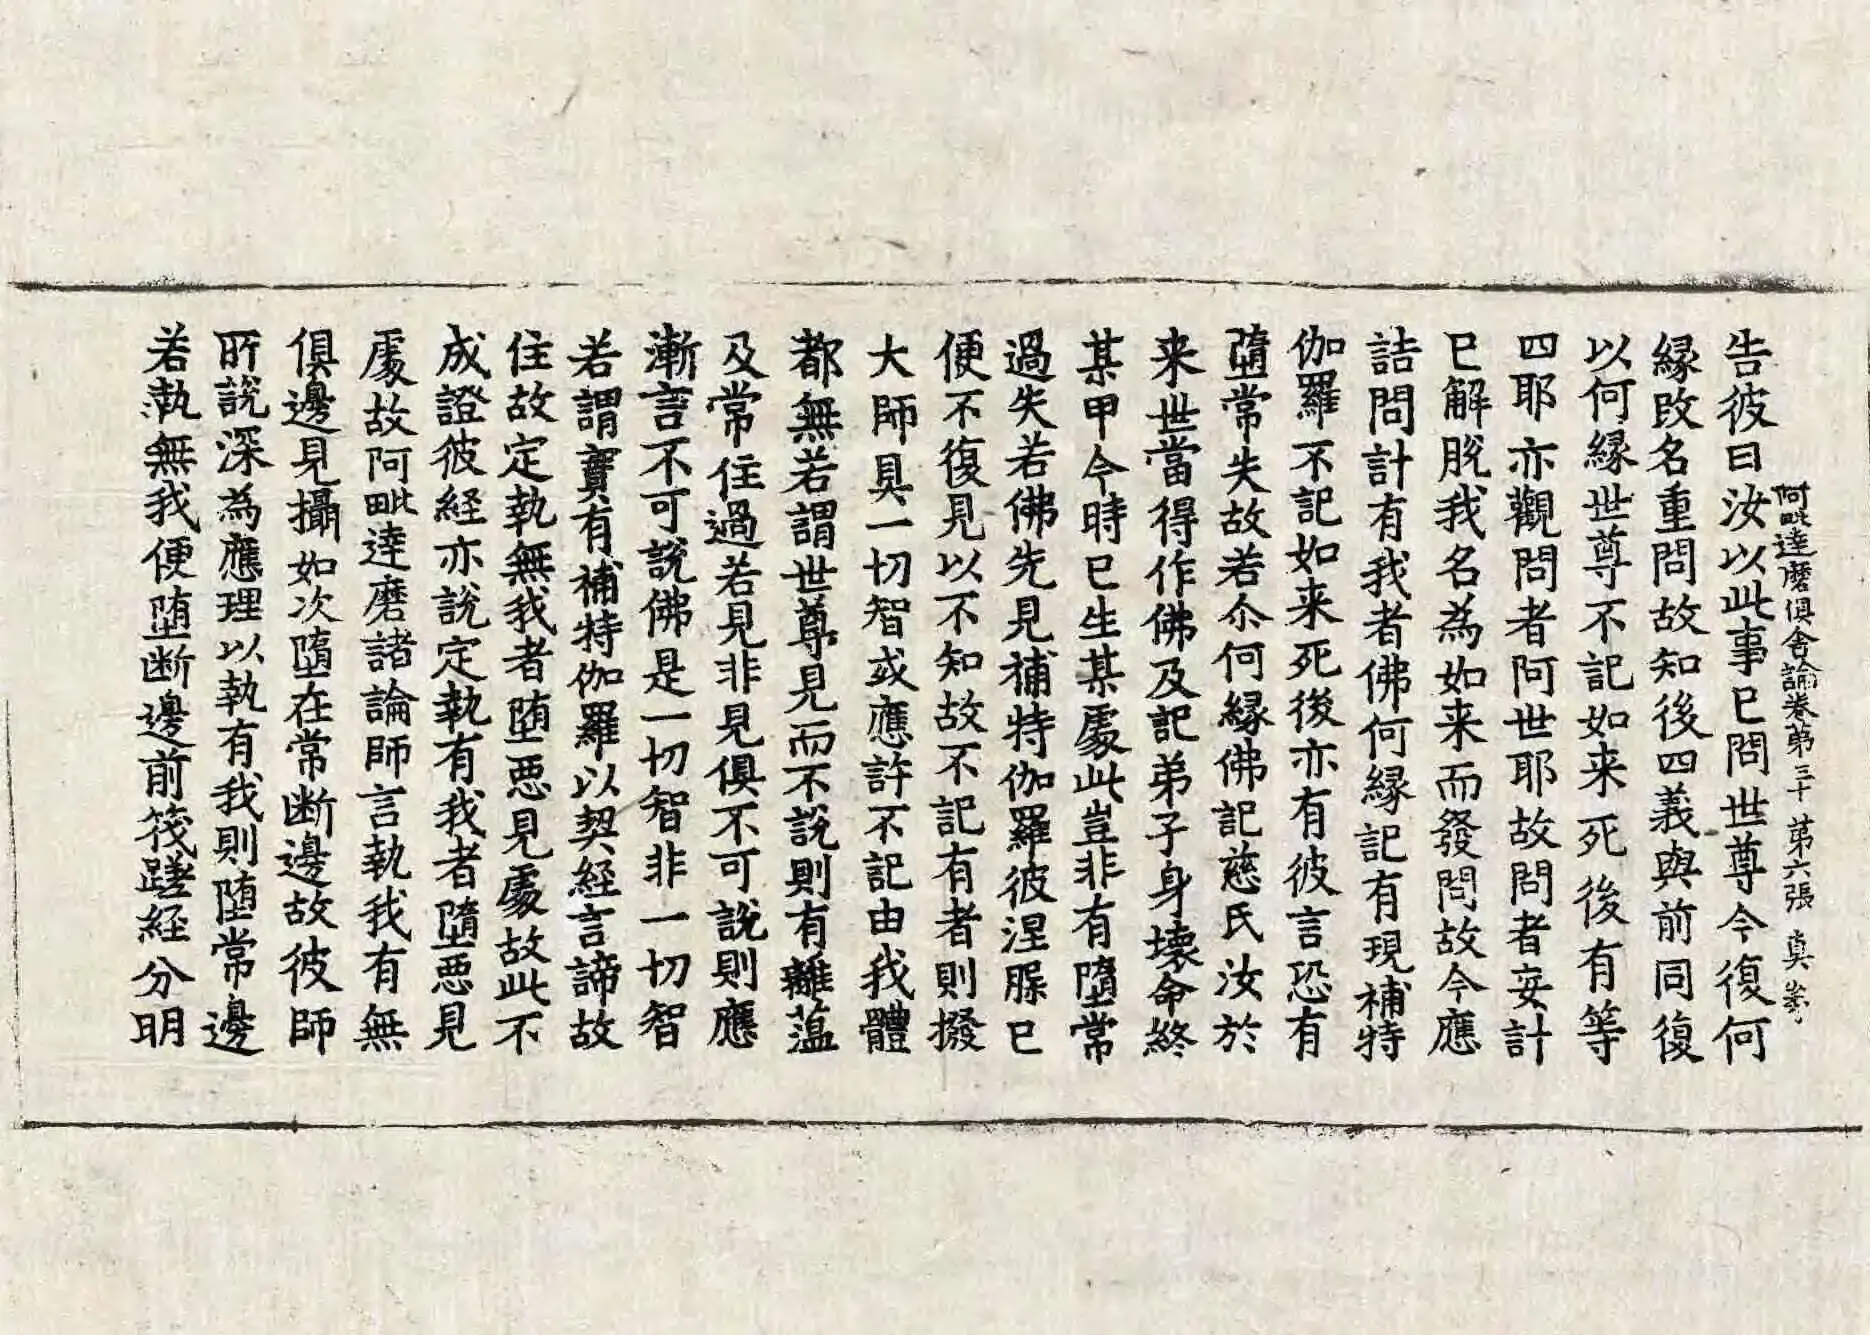 阿毗達磨俱舍論卷第三十 第六張 真
告彼曰汝以此事已問世尊今復何
緣改名重問故知後四義與前同復
以何緣世尊不記如来死後有等
四耶亦觀問者阿世耶故問者妄計
已解脫我名為如来而發問故今應
詰問計有我者佛何緣記有現補特
伽羅不記如来死後亦有彼言恐有
墮常失故若尒何緣佛記慈氏汝於
来世當得作佛及記弟子身壞命終
某甲今時已生某處此豈非有墮常
過失若佛先見補特伽羅彼涅槃已
便不復見以不知故不記有者則撥
大師具一切智或應許不記由我體
都無若謂世尊見而不說則有離蘊
及常住過若見非見俱不可說則應
漸言不可說佛是一切智非一切智
若謂實有補特伽羅以契經言諦故
住故定執無我者堕惡見處故此不
成證彼経亦說定執有我者墮惡見
處故阿毗達磨諸論師言執我有無
俱邊見攝如次墮在常断邊故彼師
所說深為應理以執有我則堕常邊
若執無我便堕断邊前筏蹉経分明